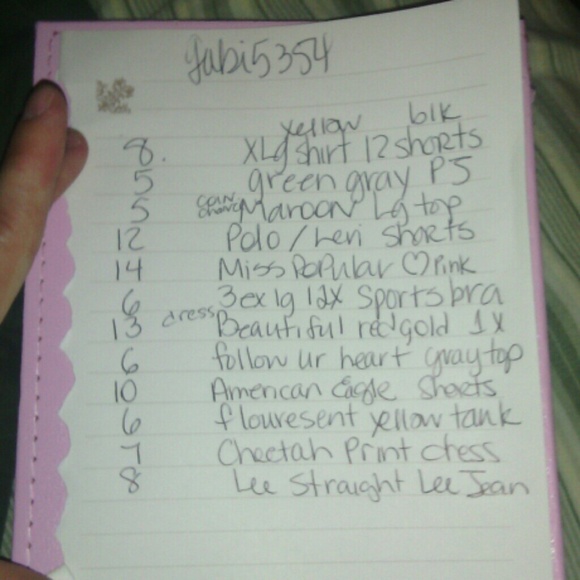 gabi5354
yellow blk
8. XLg shirt 12 shorts
5 green gray PS
5 Maroon Lg top
12 Polo / Levi shorts
14 Miss Popular ♡ Pink
6 3ex lg 12X Sports bra
13 dress Beautiful red gold 1X
6 follow ur heart gray top
10 American Eagle Shorts
6 flouresent yellow tank
7 Cheetah Print dress
8 Lee Straight Lee Jean